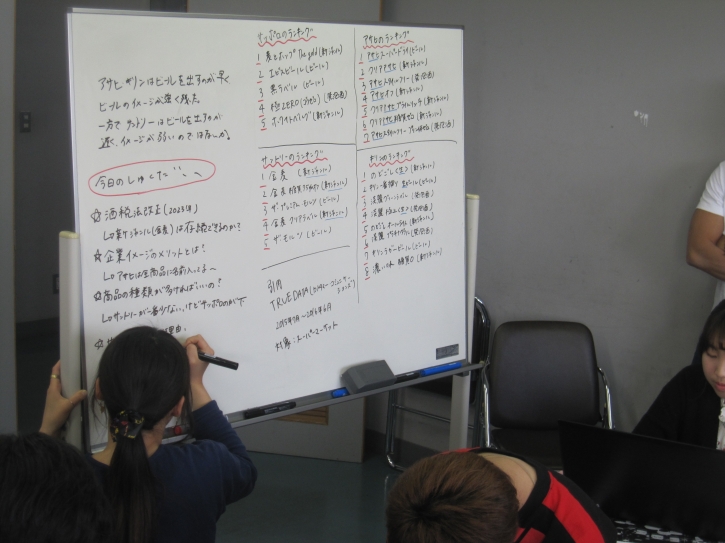 アサヒ、キリンはビールを出すのが早く
ビールのイメージが強く残った。
一方で、サントリーはビールを出すのが
遅く、イメージが弱いのではないか。
今日のしゅくだい
☆酒税法改正(2023年)
→新ジャンル(金麦)は存続できるのか?
☆企業イメージのメリットとは?
→アサヒは全商品に名前入ってる
☆商品の種類が多ければいいの?
→サントリーが一番少ない、けどサッポロのが下
理由。
サッポロのランキング
1 麦とホップ The gold (新ジャンル)
2 エビスビール (ビール)
3 黒ラベル (ビール)
4 極ZERO (発泡酒)
5 ホワイトベルグ (新ジャンル)
サントリーのランキング
1 金麦 (新ジャンル)
2 金麦 糖質75%オフ (新ジャンル)
3 ザ・プレミアム モルツ (ビール)
4 金麦 クリアラベル (新ジャンル)
5 ザ・モルツ (ビール)
引用
TRUE DATA
2015年7月〜2016年6月
対象:スーパーマーケット
アサヒのランキング
1 アサヒスーパードライ(ビール)
2 クリアアサヒ (新ジャンル)
3 アサヒスタイルフリー (発泡酒)
4 アサヒオフ (新ジャンル)
5 クリアアサヒプライムリッチ (新ジャンル)
6 クリアアサヒ糖質ゼロ (新ジャンル)
7 アサヒスタイルフリー プリン体ゼロ (発泡酒)
キリンのランキング
1 のどごし生 (新ジャンル)
2 キリン一番搾り 生ビール (ビール)
3 淡麗グリーンラベル (発泡酒)
4 淡麗 極上<生> (発泡酒)
5 のどごし オールライト (新ジャンル)
6 淡麗 プラチナダブル (発泡酒)
7 キリンラガービール (ビール)
8 濃い味 糖質0 (新ジャンル)